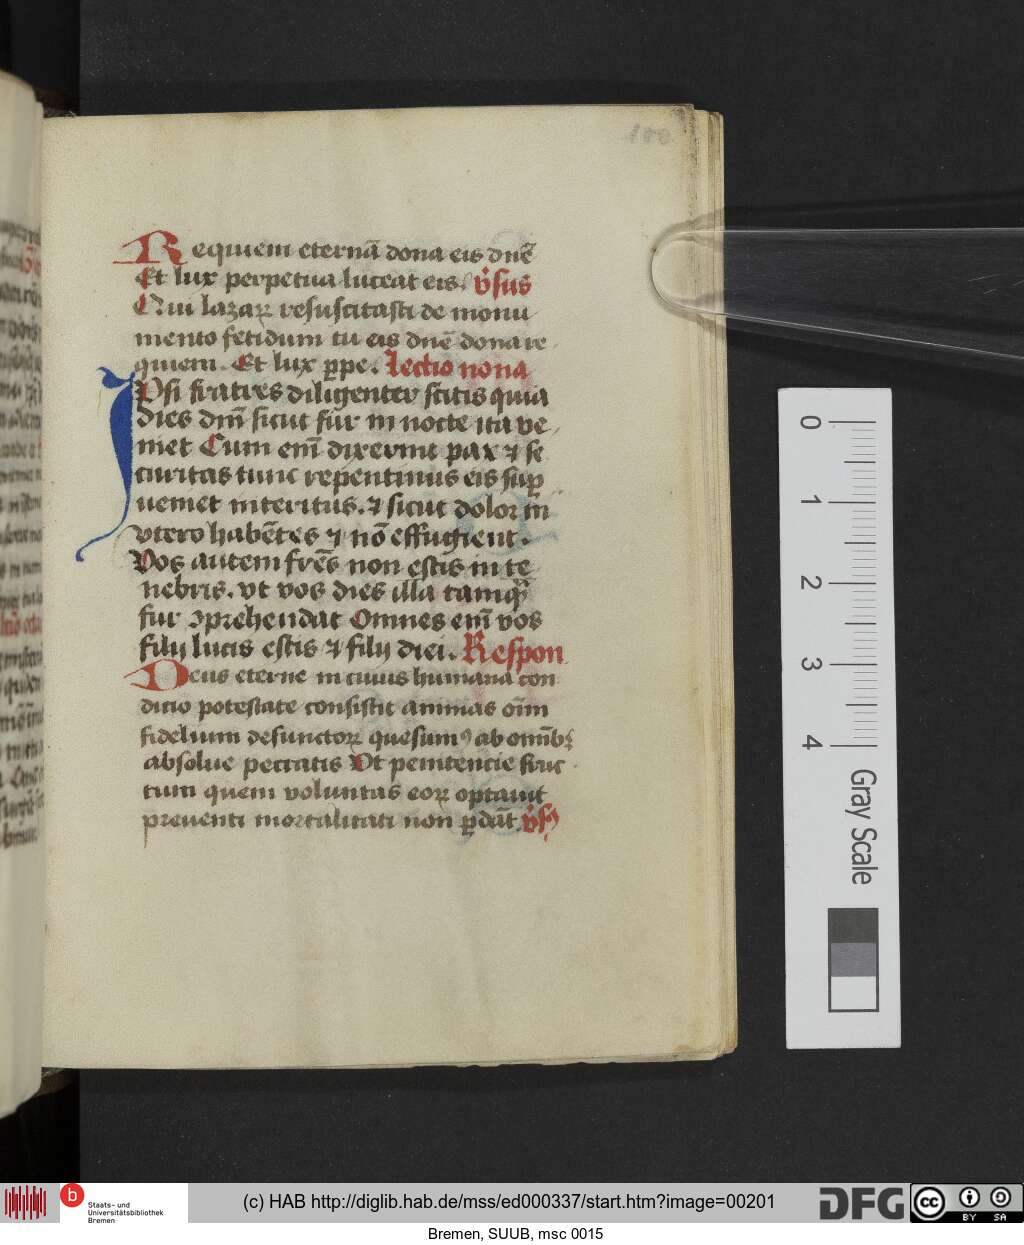 100
Requiem eternā dona eis dnē
Et lux perpetua luceat eis. v̓sus
Qui lazaꝝ resuscitasti de monu
mento fetidum tu eis dnē dona re
quiem. Et lux ꝑpe. Lectio nona
IPsi fratres diligenter scitis quia
dies dnī sicut fur in nocte ita ve
niet Cum enī dixerint pax ⁊ se
curitas tunc repentinus eis suꝑ
veniet interitus. ⁊ sicut dolor in
vtero habētes ⁊ nō effugient.
Vos autem frēs non estis in te
nebris. vt vos dies illa tamqͣ
fur ꝯprehendat Omnes enī vos
filij lucis estis ⁊ filij diei. Respon
Deus eterne in cuius humana con
dicio potestate consistit animas oīm
fidelium defunctoꝝ quesumꝰ ab omībꝫ
absolue peccatis Vt penitencie fruc
tum quem voluntas eoꝝ optauit
preuenti mortalitati non ꝑdāt. v̓sꝰ
0
1
2
3
4
Gray Scale
b
Staats- und
Universitätsbibliothek
Bremen
(c) HAB http://diglib.hab.de/mss/ed000337/start.htm?image=00201
DFG
cc
BY SA
Bremen, SUUB, msc 0015